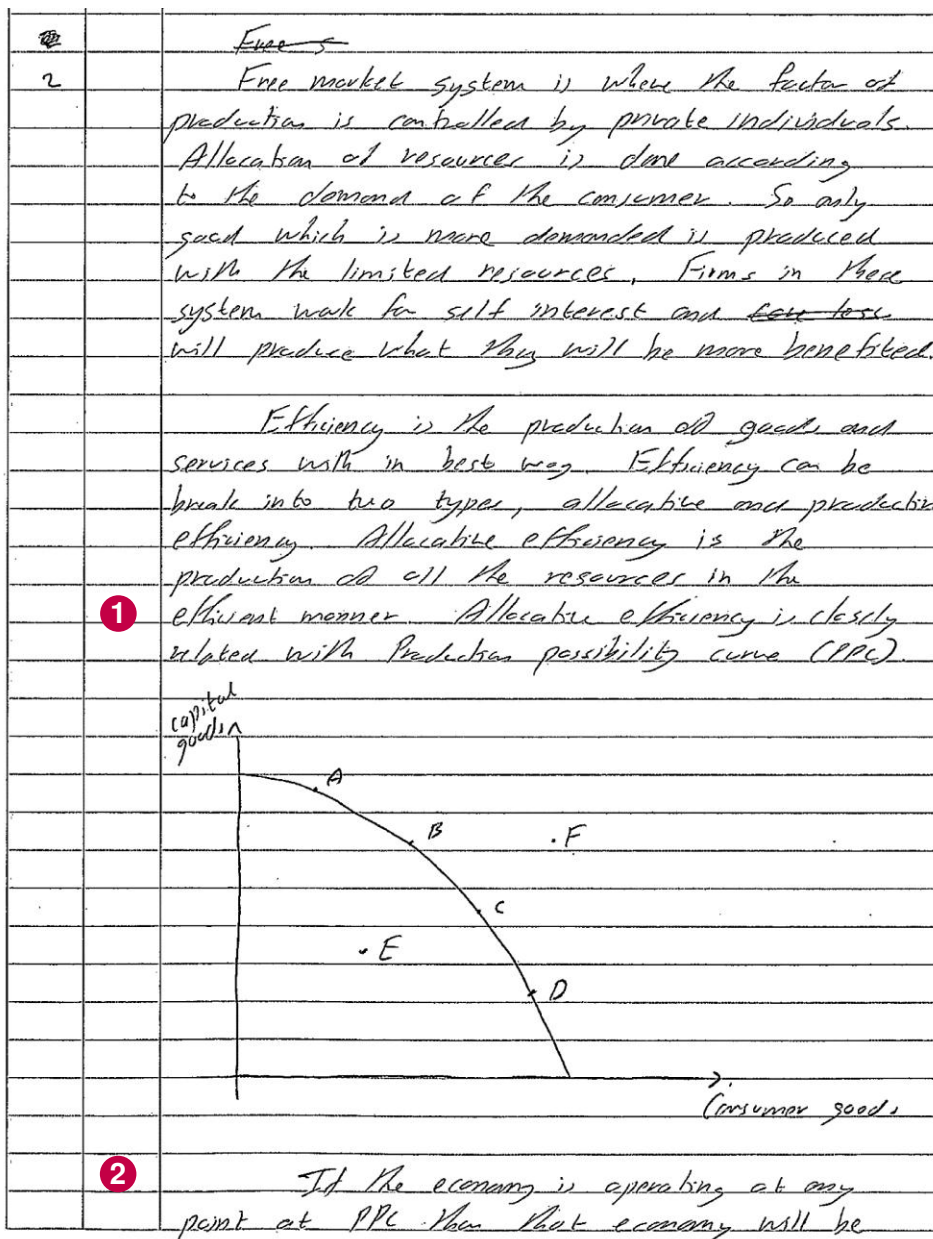 Free s
2 Free market system is where the factor of
production is controlled by private individuals.
Allocation of resources is done according
to the demand of the consumer. So only
good which is more demanded is produced
with the limited resources. Firms in these
system work for self interest and care less
will produce what they will be more benefited.
Efficiency is the production of goods and
services with in best way. Efficiency can be
break into two types, allocative and productive
efficiency. Allocative efficiency is the
production of all the resources in the
1 efficient manner. Allocative efficiency is closely
related with Production possibility curve (PPC).
capital
goods
A
B
F
C
E
D
Consumer goods
2 If the economy is operating at any
point at PPC than that economy will be